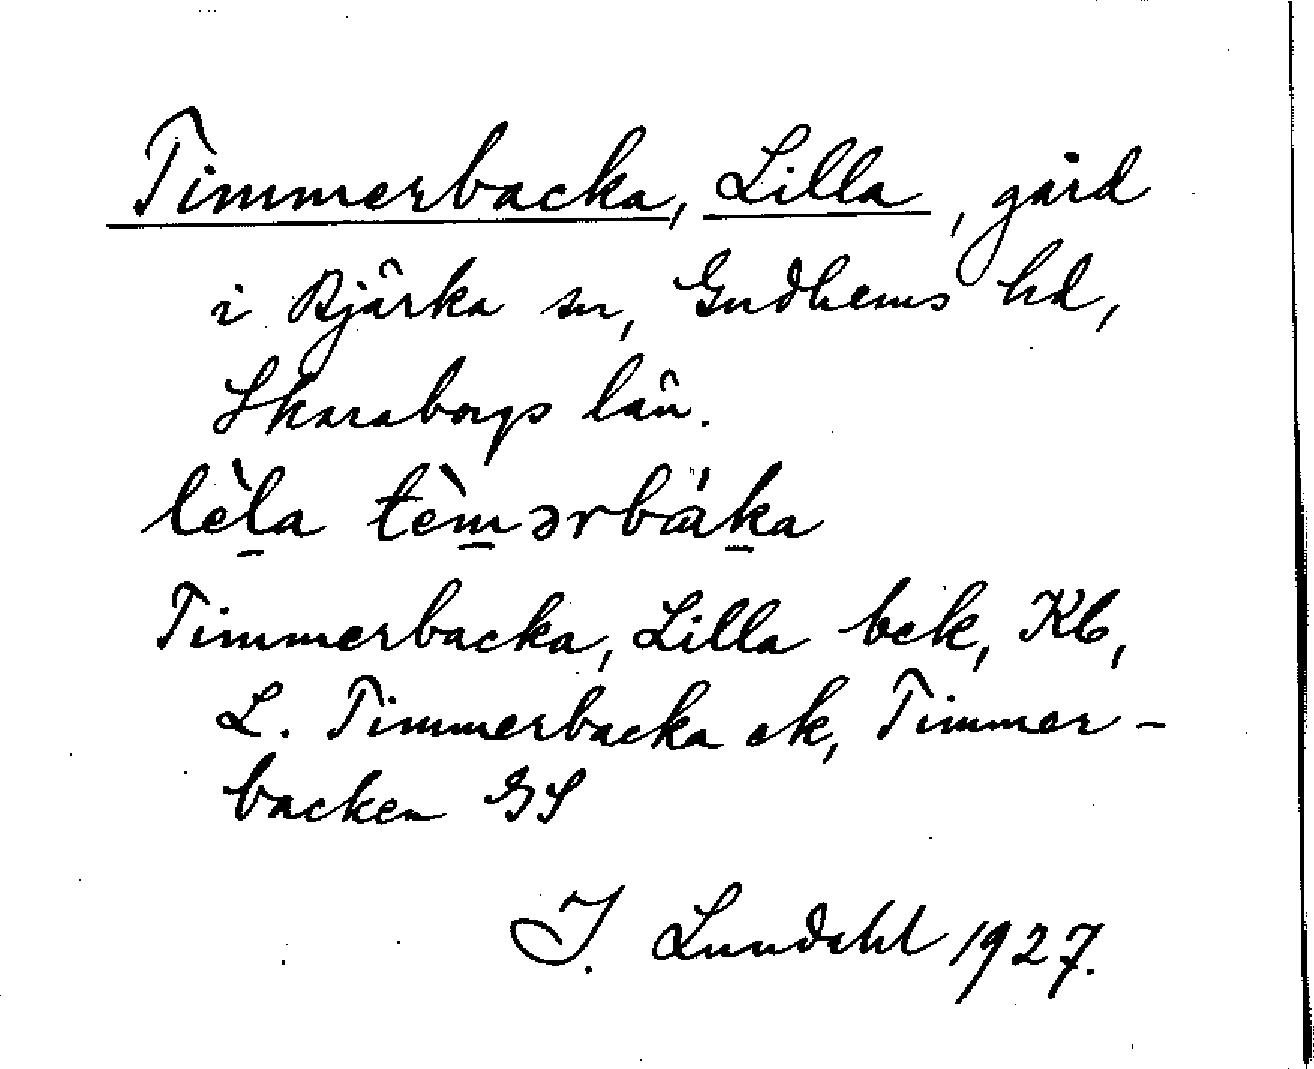 Timmerbacka, Lilla, gård
i Bjärka sn, Gudhems hd,
Skaraborgs län.
lèl̠a tèm̠ərbák̠a
Timmerbacka, Lilla bek, Kb,
L. Timmerbacka ek, Timmer-
backen GS
I. Lundahl 1927.